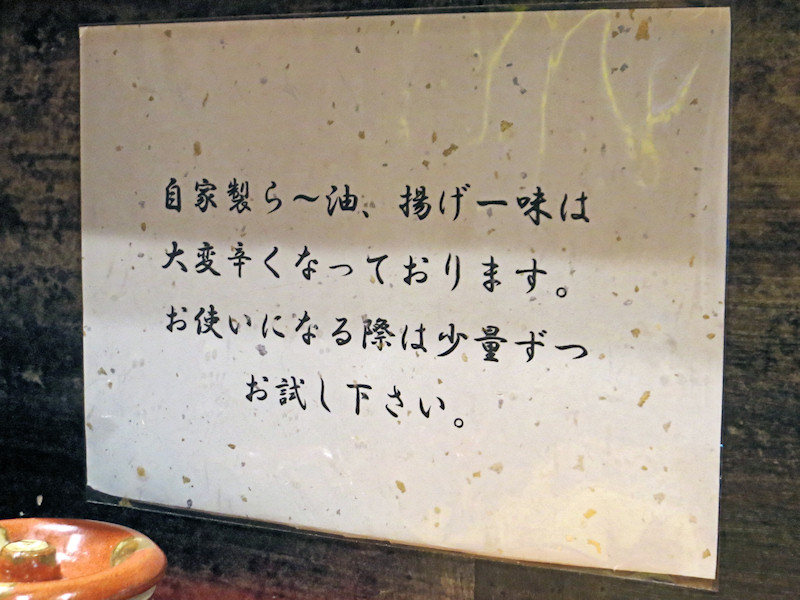 自家製ら〜油、揚げ一味は
大変辛くなっております。
お使いになる際は少量ずつ
お試し下さい。